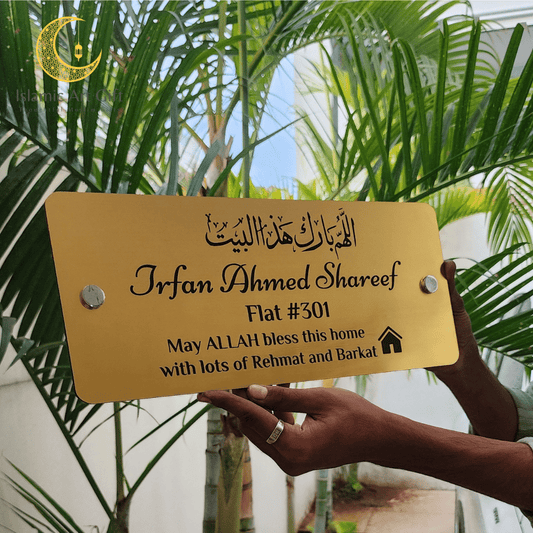 اللهم بارك هذا البيت
Irfan Ahmed Shareef
Flat #301
May ALLAH bless this home
with lots of Rehmat and Barkat